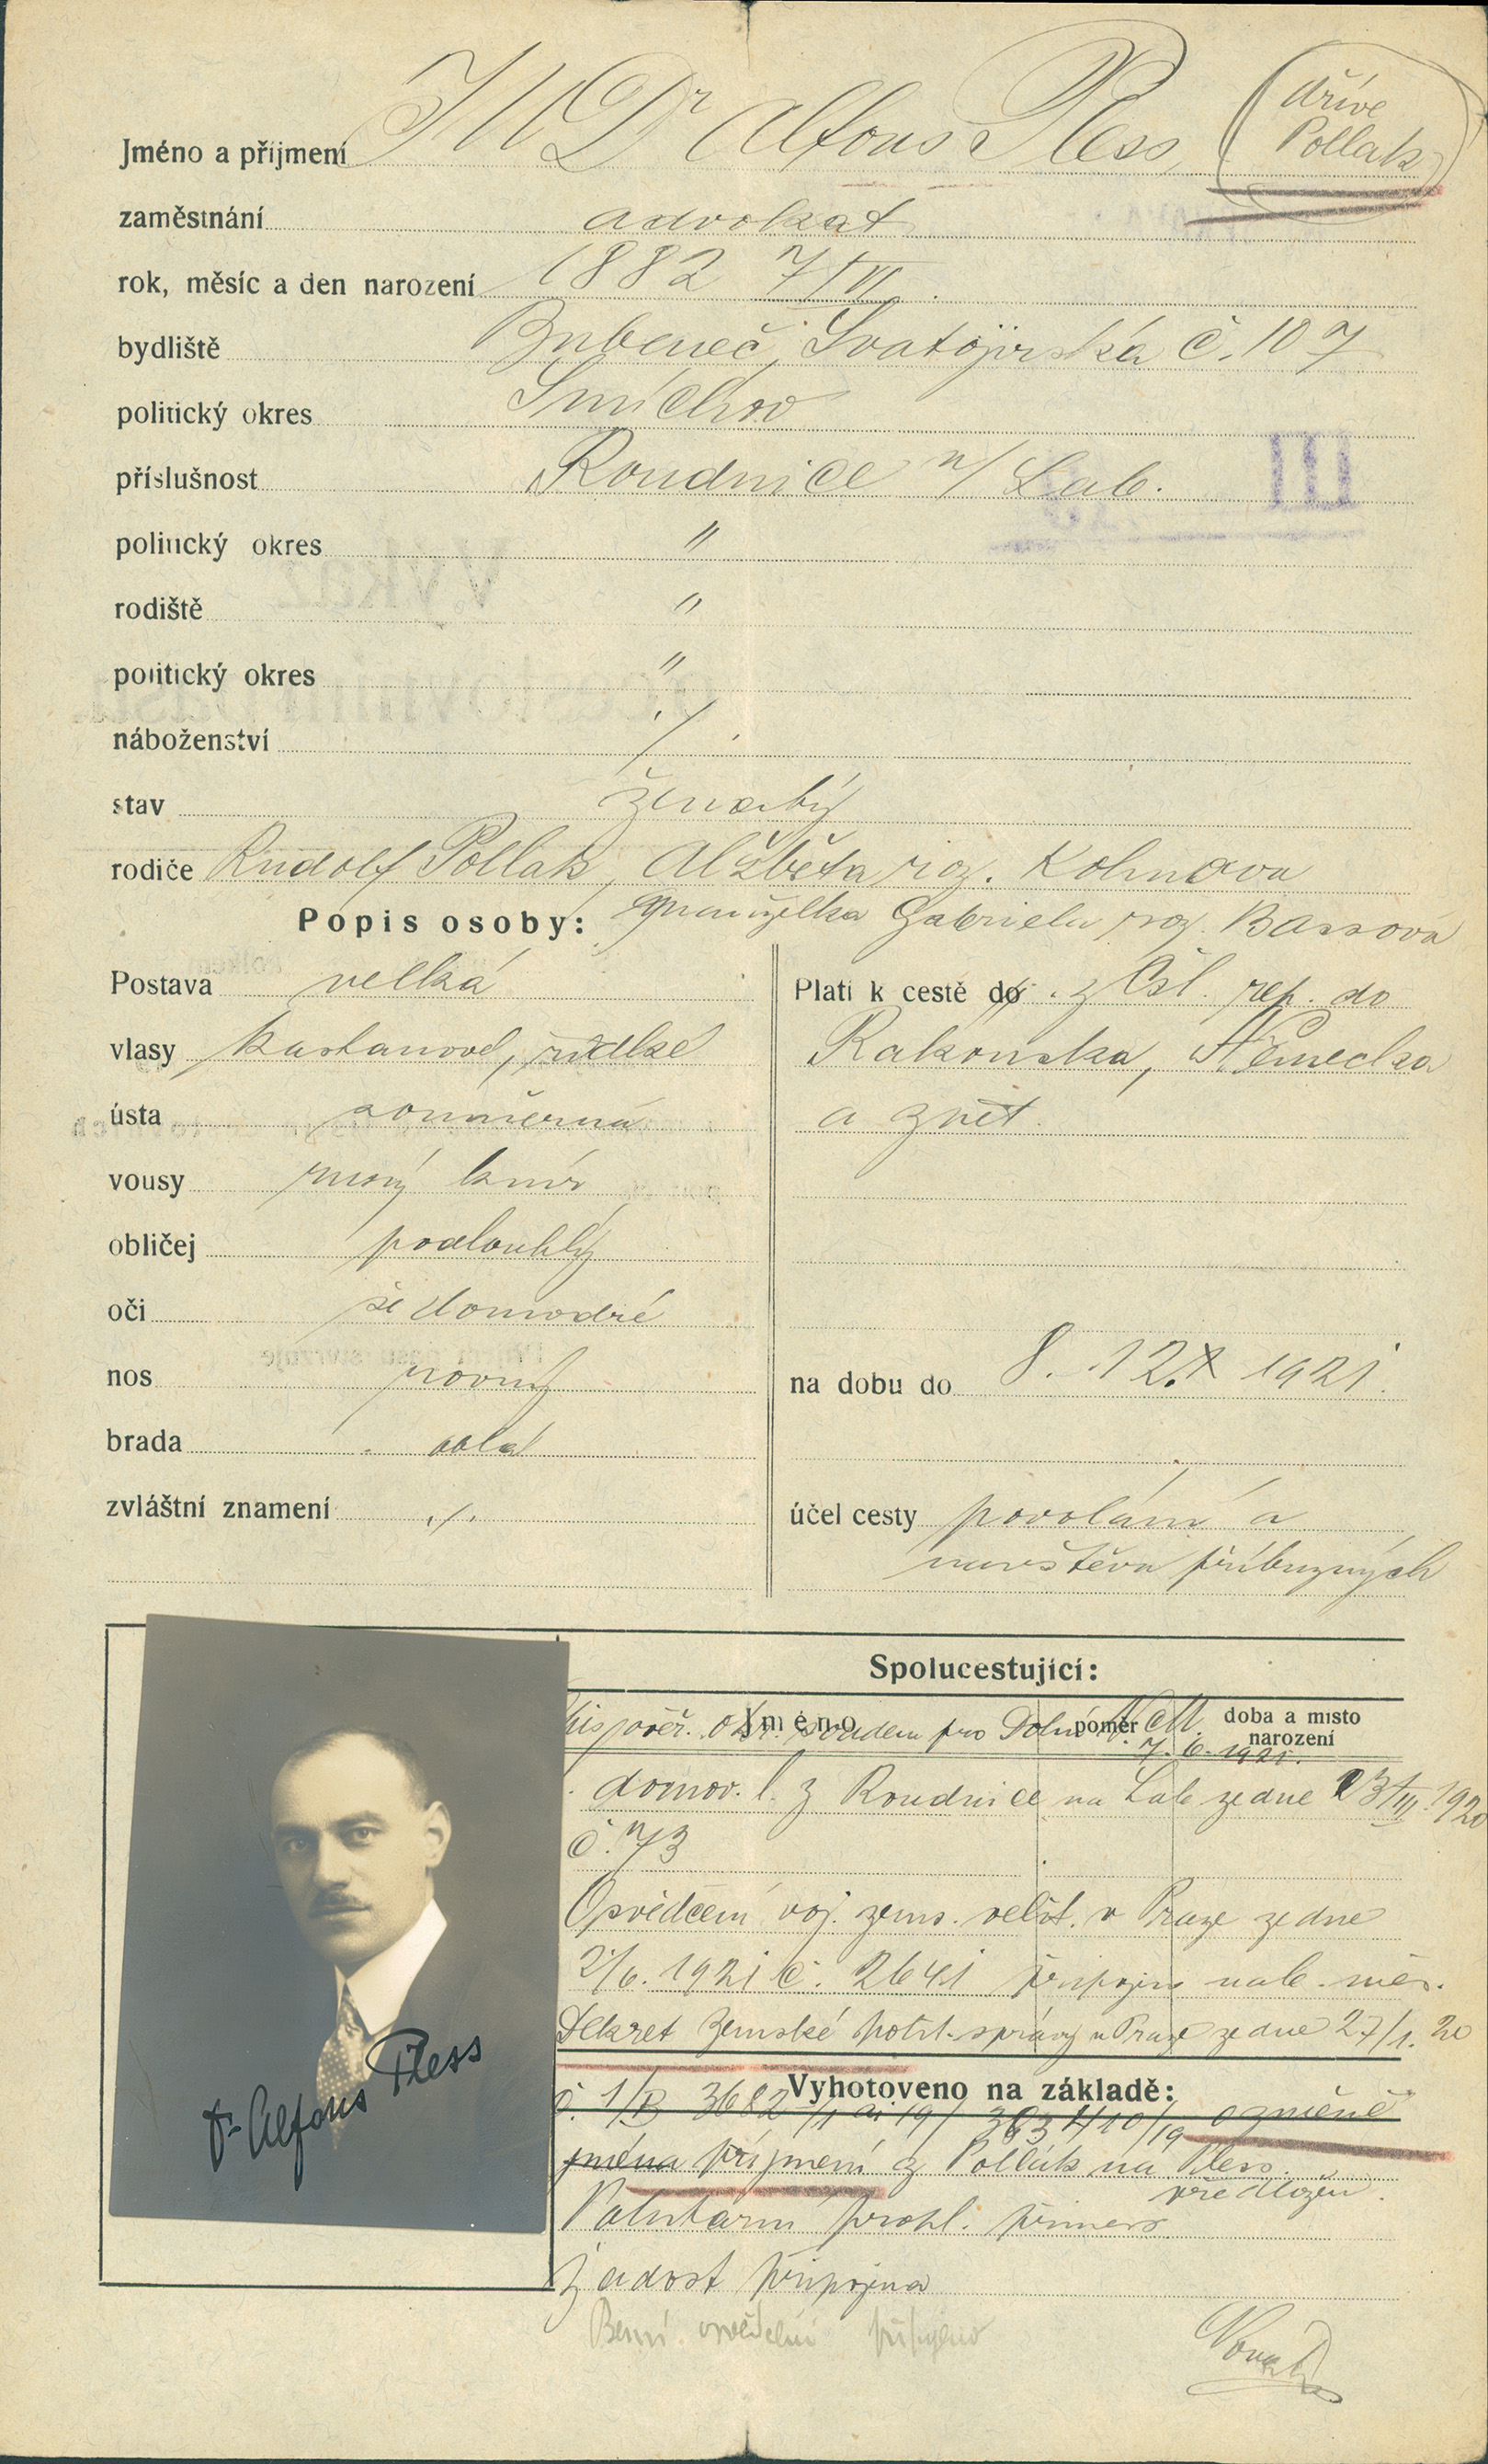 Jméno a příjmení JUDr Alfons Pless (dříve Pollak)
zaměstnání advokat
rok, měsíc a den narození 1882 7/VI.
bydliště Bubeneč, Svatojirská č. 107
politický okres Smíchov
příslušnost Roudnice n/ Lab.
III
politický okres "
rodiště "
politický okres "
náboženství ./.
stav ženatý
rodiče Rudolf Pollak, Alžběta roz. Kohnova
Popis osoby: manželka Gabriela roz. Bassova
Postava velká
vlasy kaštanové, řídké
ústa souměrná
vousy rusý knír
obličej podlouhlý
oči šedomodré
nos rovný
brada oblá
zvláštní znamení ./.
Platí k cestě do z Čsl. rep. do
Rakouska, Německa
a zpět.
na dobu do 8. 12. 1921.
účel cesty povolání a
navštěva příbuzných
Spolucestující:
jméno poměr doba a místo narození
okr. soudem pro Dolní 7. 6. 1921.
domov. l. z Roudnice na Lab ze dne 23/III. 1920
č. 73
Osvědčení voj. zems. velit. v Praze ze dne
2/6. 1921 č. 2641 připojeno
Dekret Zemské polit. správy v Praze ze dne 27/1. 20
Vyhotoveno na základě:
č. 1/B 3682/1 ai 19/ o změně
jména příjmení z Pollák na Pless.
předložen.
prohl.
Žádost připojena
Berní osvědčení připojeno
Dr. Alfons Pless